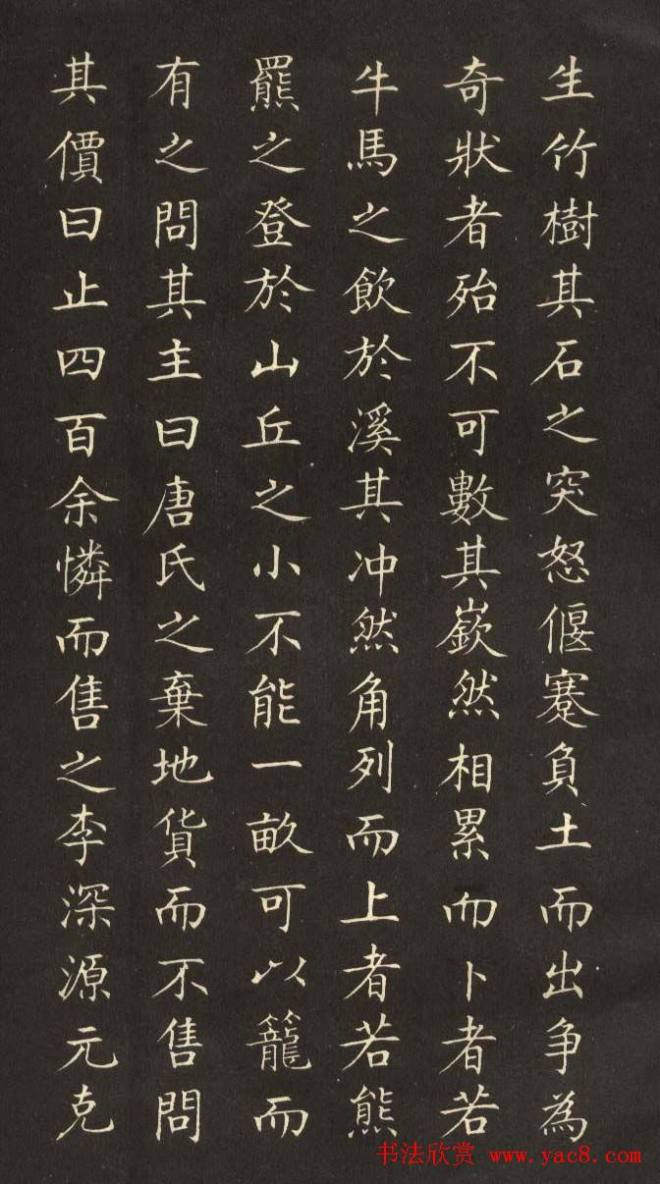 生竹樹其石之突怒偃蹇負土而出争為
奇狀者殆不可數其嶔然相累而卜者若
牛馬之飲於溪其冲然角列而上者若熊
羆之登於山丘之小不能一畝可以籠而
有之問其主曰唐氏之棄地貨而不售問
其價曰止四百余憐而售之李深源元克
书法欣赏 www.yac8.com